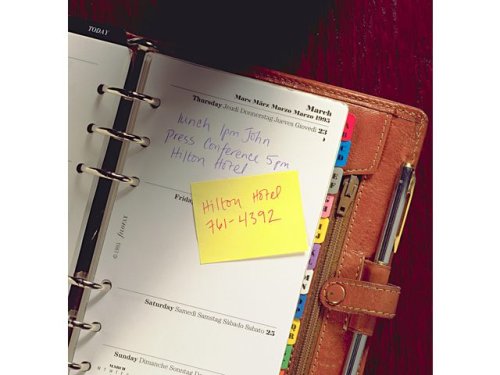 TODAY
March
Mars März Marzo Marzo 1995
Thursday Jeudi Donnerstag Jueves Giovedì 23
lunch 1pm John
Press Conference 5pm
Hilton Hotel
Friday
Hilton Hotel
761-4392
© 1991 filofax
Saturday Samedi Samstag Sábado Sabato 25
Sunday Dimanche Sonntag
MARCH